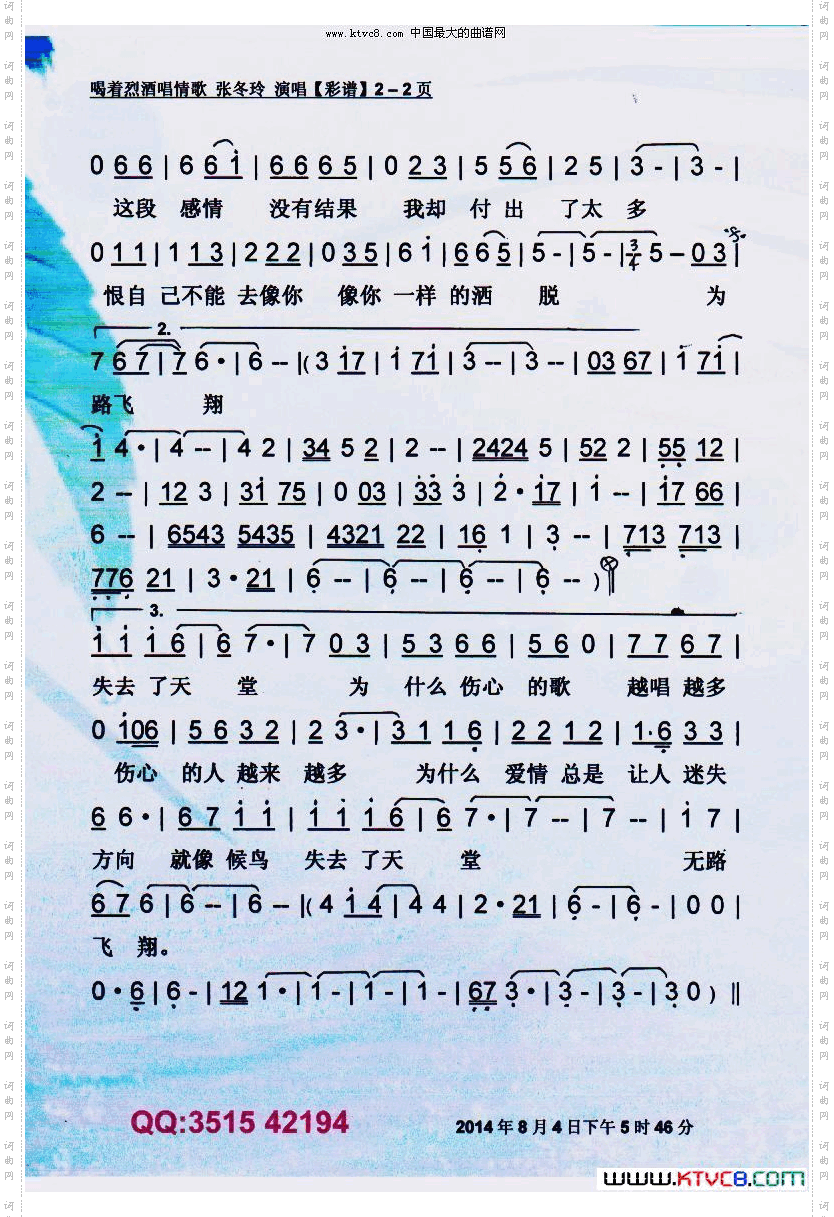 www.ktvc8.com 中国最大的曲谱网
喝着烈酒唱情歌 张冬玲 演唱【彩谱】2－2页
0 6 6 | 6 6 i | 6 6 6 5 | 0 2 3 | 5 5 6 | 2 5 | 3 - | 3 - |
这段 感情 没有结果 我却 付 出 了太 多
0 1 1 | 1 1 3 | 2 2 2 | 0 3 5 | 6 i | 6 6 5 | 5 - | 5 - | 3/4 5 － 0 3 |
恨自 己不能 去像你 像你 一样 的洒 脱 为
2.
7 6 7 | 7 6 · | 6 -- |( 3 i7 | i 7i | 3 -- | 3 -- | 03 67 | i 7i |
路飞 翔
i 4 · | 4 -- | 4 2 | 34 5 2 | 2 -- | 2424 5 | 52 2 | 55 12 |
2 -- | 12 3 | 3i 75 | 0 03 | 33 3 | 2 · i7 | i -- | i7 66 |
6 -- | 6543 5435 | 4321 22 | 16 1 | 3 -- | 713 713 |
776 21 | 3 · 21 | 6 -- | 6 -- | 6 -- | 6 -- )
3.
i i i 6 | 6 7 · | 7 0 3 | 5 3 6 6 | 5 6 0 | 7 7 6 7 |
失去 了天 堂 为 什么 伤心 的歌 越唱 越多
0 i06 | 5 6 3 2 | 2 3 · | 3 1 1 6 | 2 2 1 2 | 1· 6 3 3 |
伤心 的人 越来 越多 为什么 爱情 总是 让人 迷失
6 6 · | 6 7 i i | i i i 6 | 6 7 · | 7 -- | 7 -- | i 7 |
方向 就像 候鸟 失去 了天 堂 无路
6 7 6 | 6 -- | 6 -- |( 4 i 4 | 4 4 | 2 · 21 | 6 - | 6 - | 0 0 |
飞 翔。
0 · 6 | 6 - | 12 1 · | 1 - | 1 - | 1 - | 67 3 · | 3 - | 3 - | 3 0 ) ‖
QQ:3515 42194
2014年8月4日下午5时46分
www.KTVC8.com